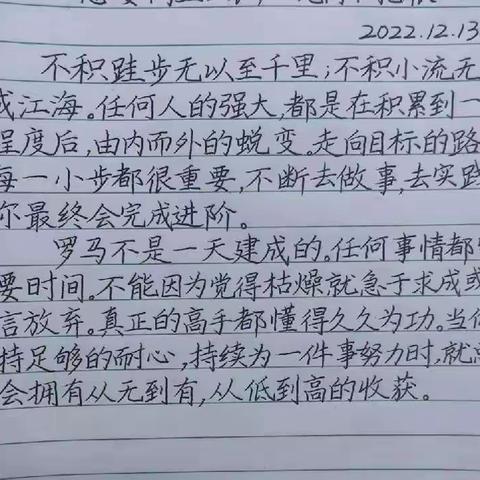 2022.12.13
不积跬步无以至千里;不积小流无
成江海。任何人的强大,都是在积累到一
程度后,由内而外的蜕变。走向目标的路
每一小步都很重要,不断去做事,去实践
你最终会完成进阶。
罗马不是一天建成的。任何事情都
要时间。不能因为觉得枯燥就急于求成或
言放弃。真正的高手都懂得久久为功。当
持足够的耐心,持续为一件事努力时,就
会拥有从无到有,从低到高的收获。